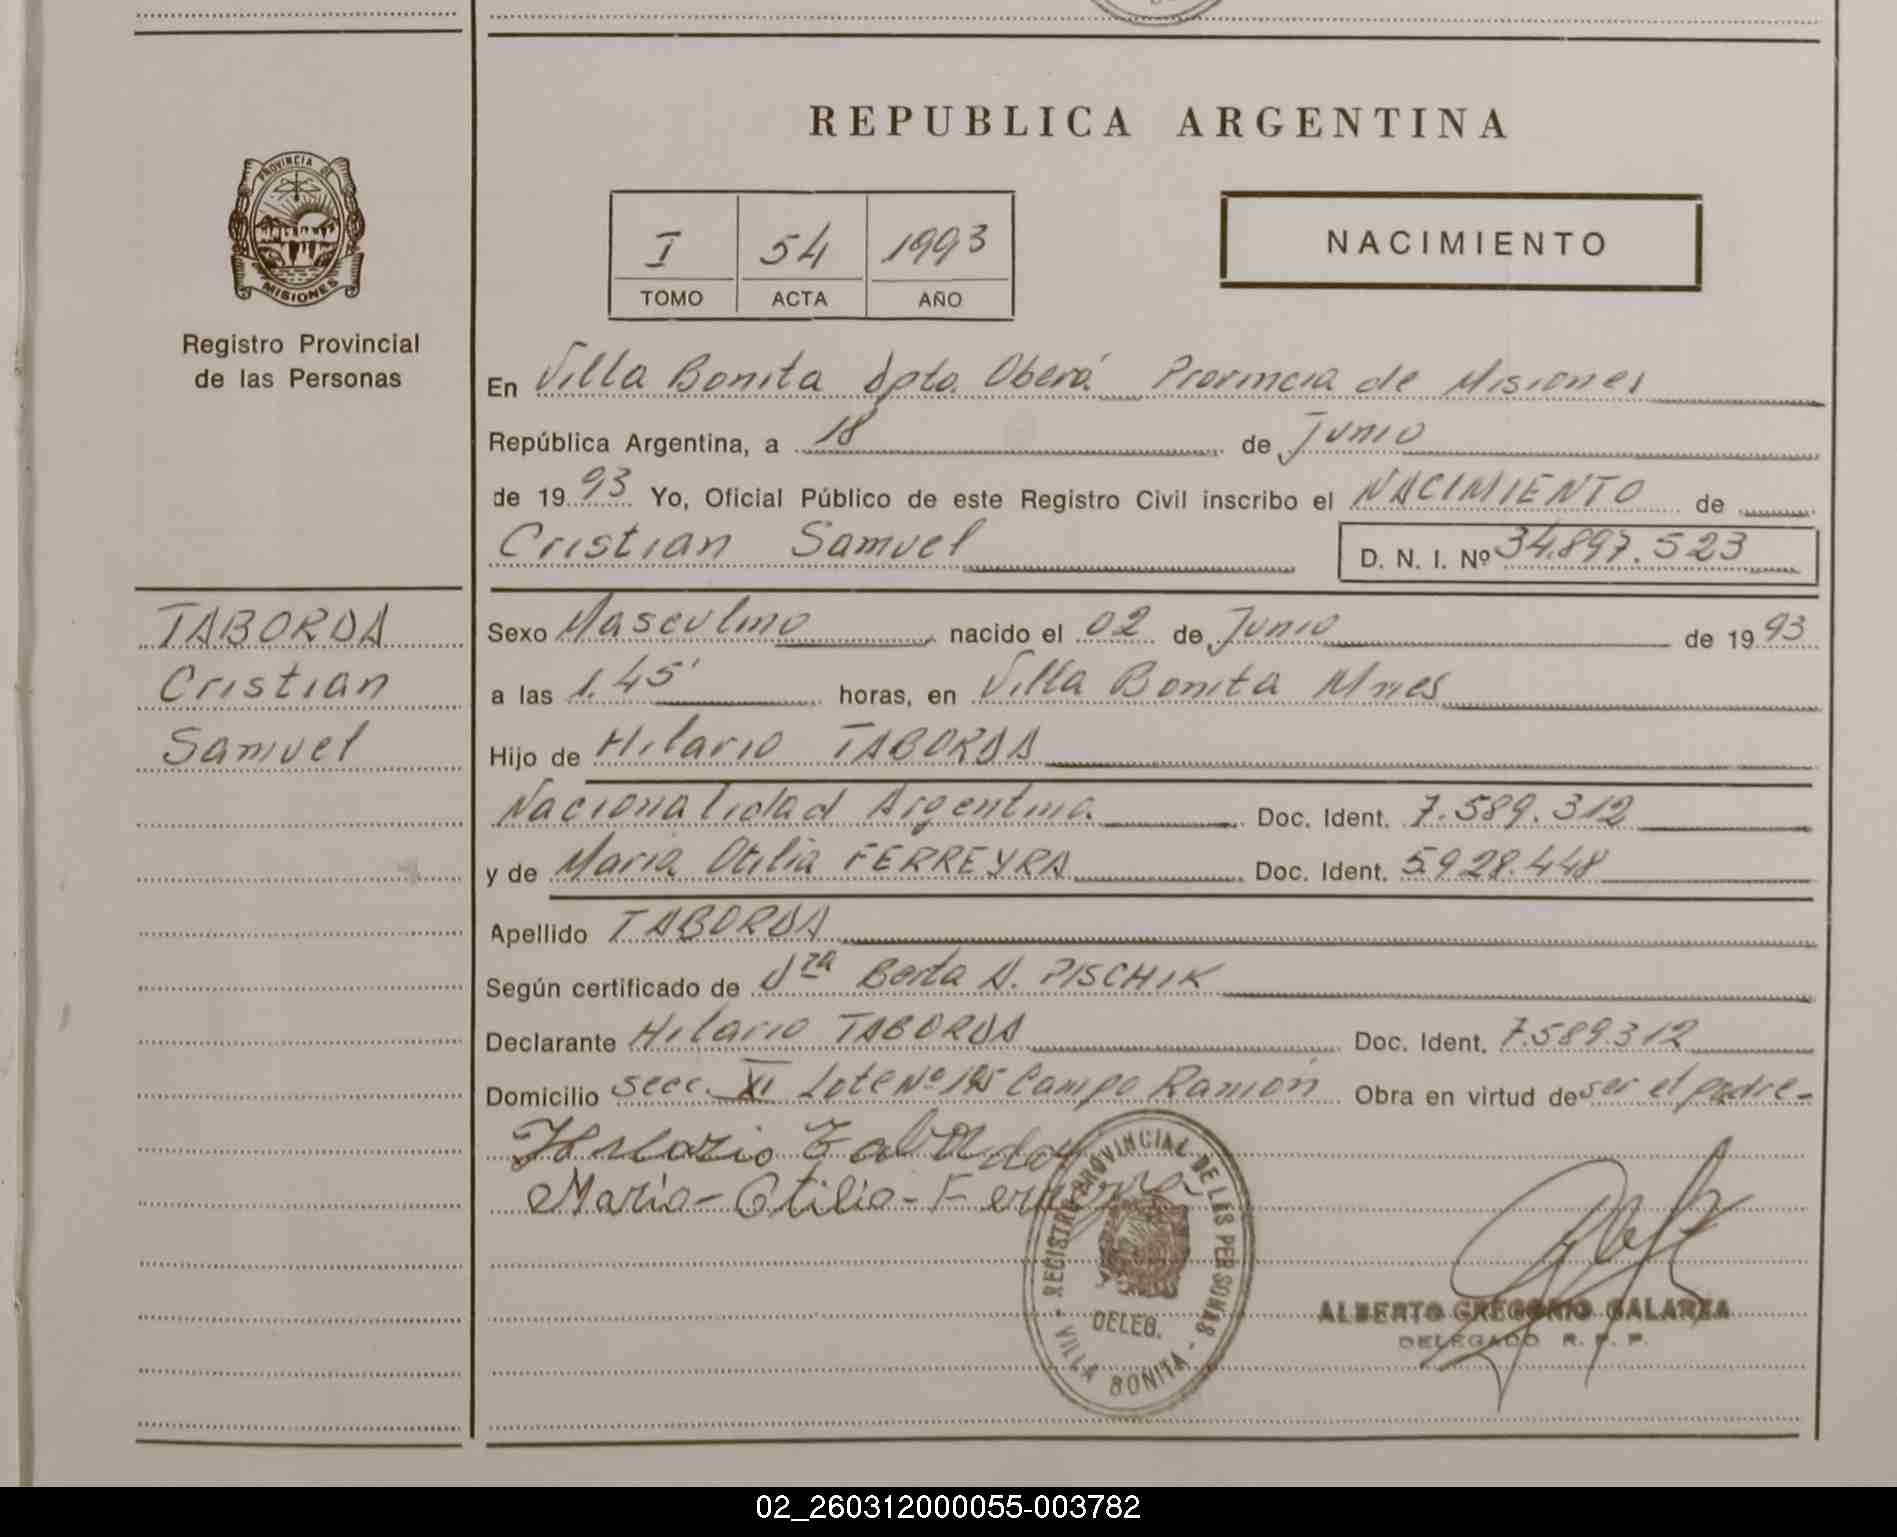 REPUBLICA ARGENTINA
PROVINCIA DE MISIONES
Registro Provincial
de las Personas
I 54 1993
TOMO ACTA AÑO
NACIMIENTO
En Villa Bonita Dpto. Oberá Provincia de Misiones
República Argentina, a 18 de Junio
de 1993 Yo, Oficial Público de este Registro Civil inscribo el NACIMIENTO de
Cristian Samuel D. N. I. Nº 34.897.523
TABORDA
Cristian
Samuel
Sexo Masculino nacido el 02 de Junio de 1993
a las 1.45' horas, en Villa Bonita Mnes
Hijo de Hilario TABORDA
Nacionalidad Argentina. Doc. Ident. 7.589.312
y de Maria Otilia FERREYRA Doc. Ident. 5.928.448
Apellido TABORDA
Según certificado de Dra Berta A. PISCHIK
Declarante Hilario TABORDA Doc. Ident. 7.589.312
Domicilio secc. XI Lote Nº 195 Campo Ramón Obra en virtud de ser el padre-
Hilario Taborda
Maria-Otilia-Ferreyra
REGISTRO PROVINCIAL DE LAS PERSONAS
DELEG.
- VILLA BONITA -
ALBERTO GREGORIO GALARZA
DELEGADO R. P. P.
02_260312000055-003782